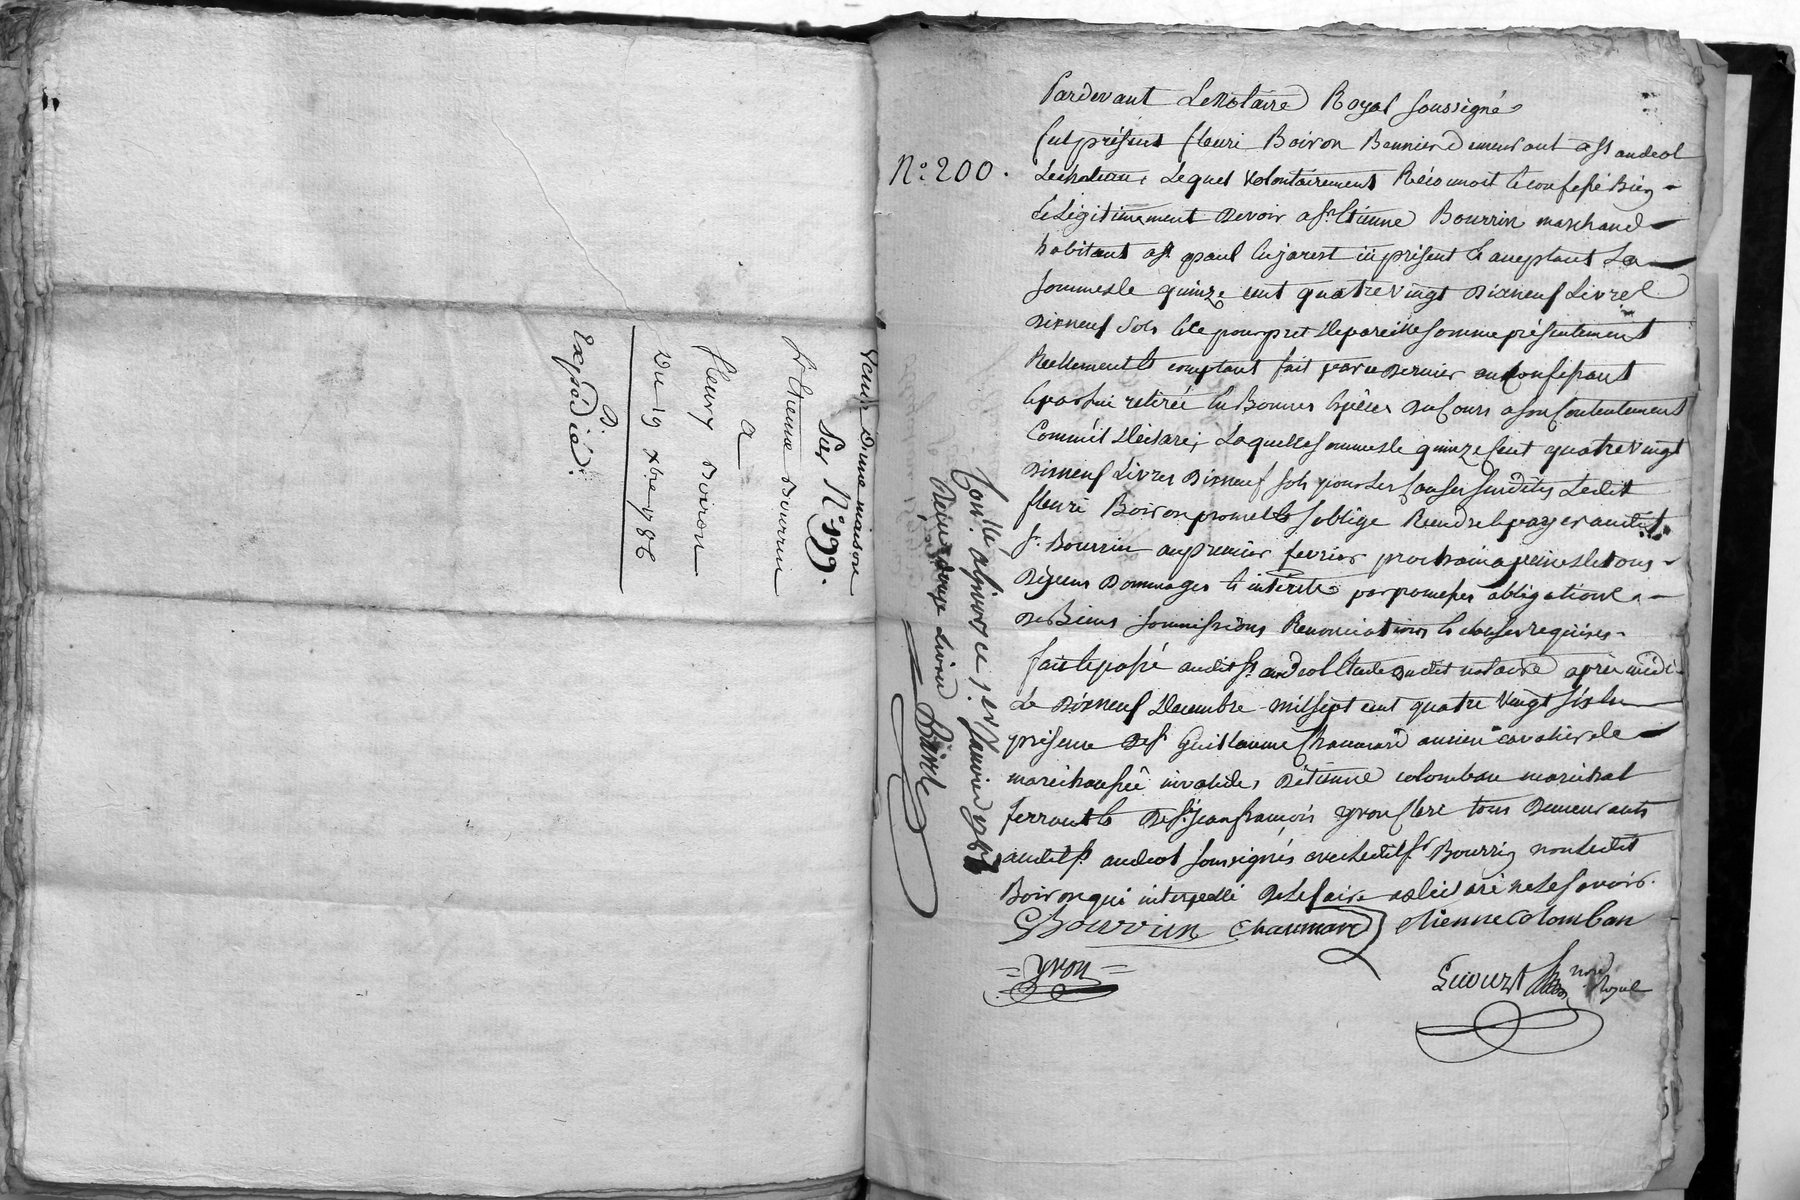 Vente D'une maison
Sig N.° 199.
S.r Etienne Bourrin
a
fleury Boiron
Du 19 xbre 1786
Expédié.
N.° 200.
Pardevant Le Notaire Royal soussigné
fut présent fleuri Boiron Bennier demeurant a St andeol
Lechateau, Lequel volontairement Reconnoit et confessé Bien
et Légitimement Devoir a Sr. Etienne Bourrin marchand
habitant a St paul en jarest ici présent et aceptant La
somme de quinze cent quatre vingt Dixneuf Livres
Dixneuf sols et ce pour pret De pareille somme présentement
Reellement et comptant fait par ce Dernier au confessant
et par lui retirée en Bonnes espèces Du Cours a son Contentement
Comm'il Déclare, Laquelle somme de quinze Cent quatre vingt
Dixneuf Livres Dixneuf sols pour Les Causes susdites Ledit
fleuri Boiron promet et s'oblige Rendre et payer audit
Sr. Bourrin au premier fevrier prochain a peine de tous
Dépens Dommages et intérêts par promesses obligation
De Biens soumissions Renonciations et clauses requises.
fait et passé audit St. andeol Etude Dudit notaire après midi
Le Dixneuf Decembre mil sept cent quatre vingt six en
présence De Sr Guillaume Chaumard ancien cavalier de
maréchaussée invalide, D'etienne colomban maréchal
ferrant et De Sr. jean françois yvon Clerc tous Demeurants
audit St. andeol soussignés avec Ledit Sr Bourrin non Ledit
Boiron qui interpellé De Le faire a déclaré ne Le savoir.
Bourrin Chaumard etienne Colomban
= yvon =
not.re Royal
Con.llé a ce 1.er janvier 1787
Reçu douze Livres